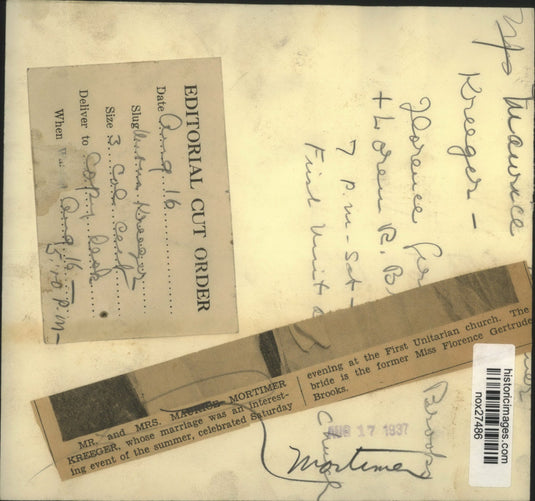 EDITORIAL CUT ORDER
Date Aug 16
Slug Kreeger
Size 3 Col Cent
Deliver to Copy Desk
When Aug 16 —
5:10 P.M —
M/s Maurice
Kreeger —
Florence
+ Loren R. B
7 p.m - Sat -
First Unit
Church
Brooks
Mortimer
MR. and MRS. MAURICE MORTIMER
KREEGER, whose marriage was an interest-
ing event of the summer, celebrated Saturday
evening at the First Unitarian church. The
bride is the former Miss Florence Gertrude
Brooks.
AUG 17 1937
historicimages.com
nox27486